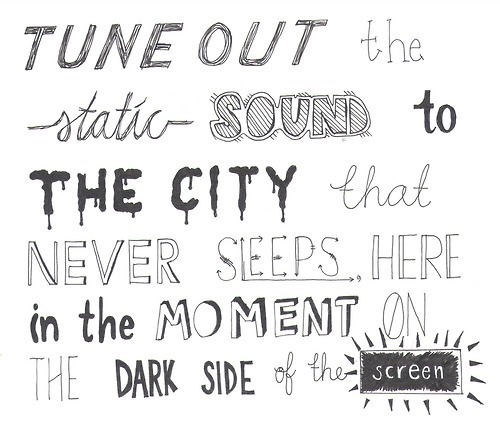 TUNE OUT the
static SOUND to
THE CITY that
NEVER SLEEPS, HERE
in the MOMENT ON
THE DARK SIDE of the screen